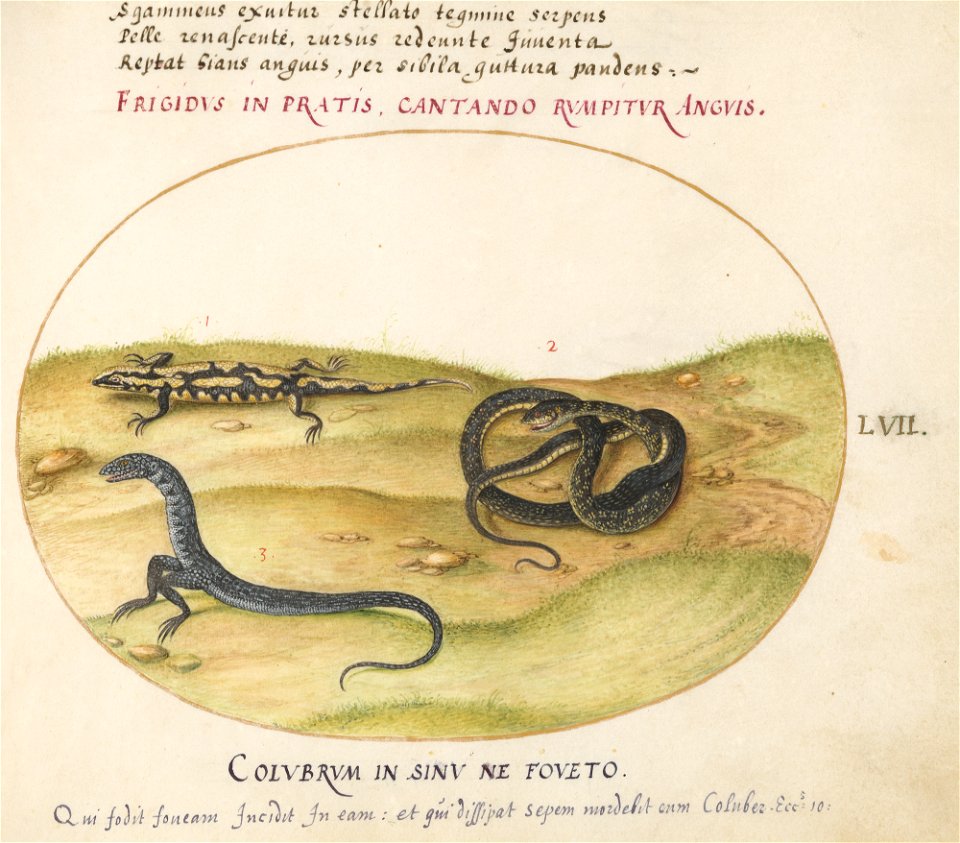 Sqammeus exuitur stellato tegmine serpens
Pelle renascente, rursus redeunte Juventa
Reptat hians anguis, per sibila guttura pandens:~
FRIGIDVS IN PRATIS, CANTANDO RVMPITVR ANGVIS.
1
2
LVII.
3
COLVBRVM IN SINV NE FOVETO.
Qui fodit foveam Incidit In eam: et qui dissipat sepem mordebit eum Coluber. Eccs 10: